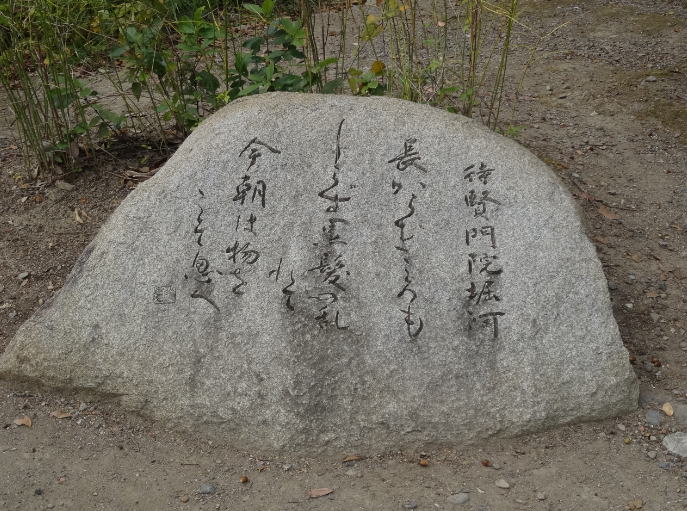 待賢門院堀河
長からむこころも
しらず黒髪の乱
れて
今朝は物を
こそ思へ